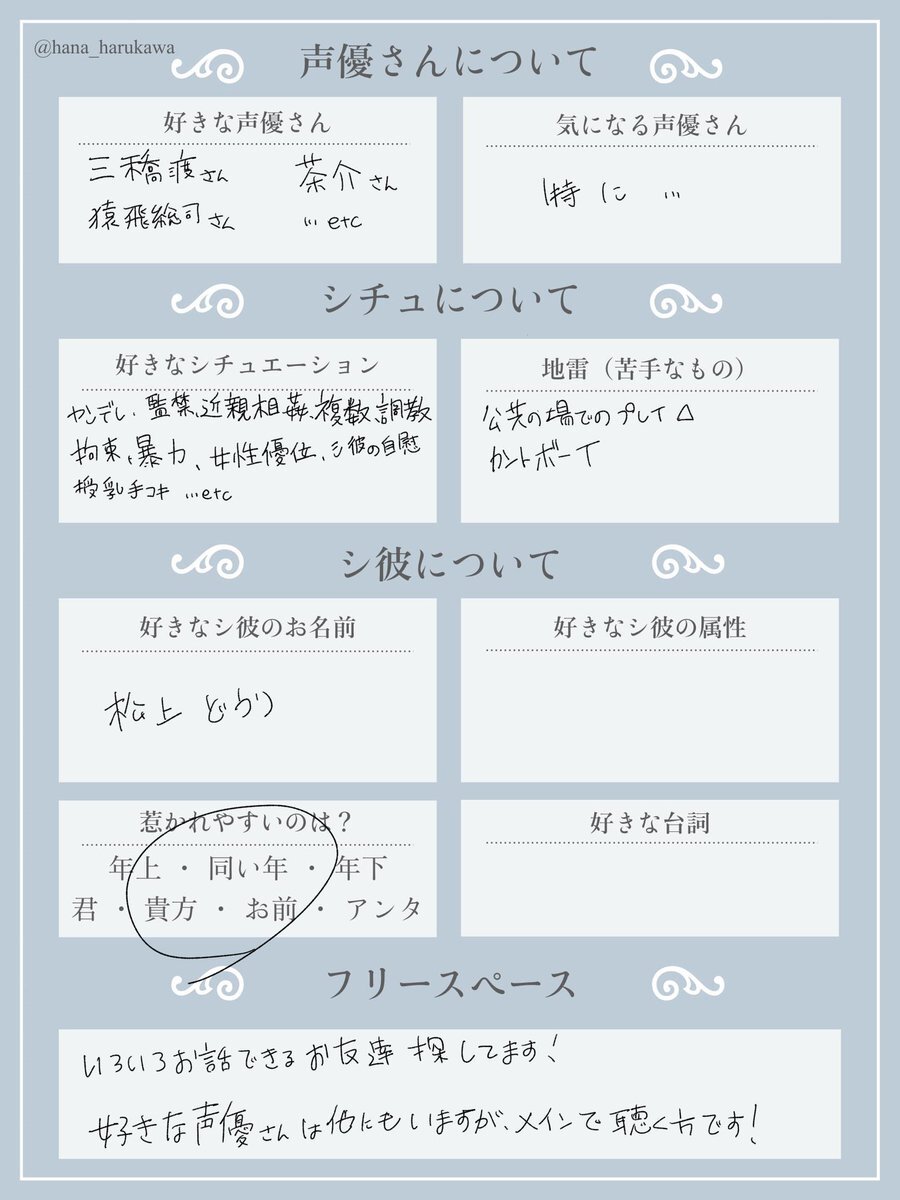 @hana_harukawa
声優さんについて
好きな声優さん
三橋渡さん 茶介さん
猿飛総司さん …etc
気になる声優さん
特に …
シチュについて
好きなシチュエーション
ヤンデレ、監禁、近親相姦、複数、調教
拘束、暴力、女性優位、シ彼の自慰
授乳手コキ …etc
地雷（苦手なもの）
公共の場でのプレイ△
カントボーイ
シ彼について
好きなシ彼のお名前
松上
好きなシ彼の属性
惹かれやすいのは？
年上 ・ 同い年 ・ 年下
君 ・ 貴方 ・ お前 ・ アンタ
好きな台詞
フリースペース
いろいろお話できるお友達 探してます！
好きな声優さんは他にもいますが、メインで聴く方です！